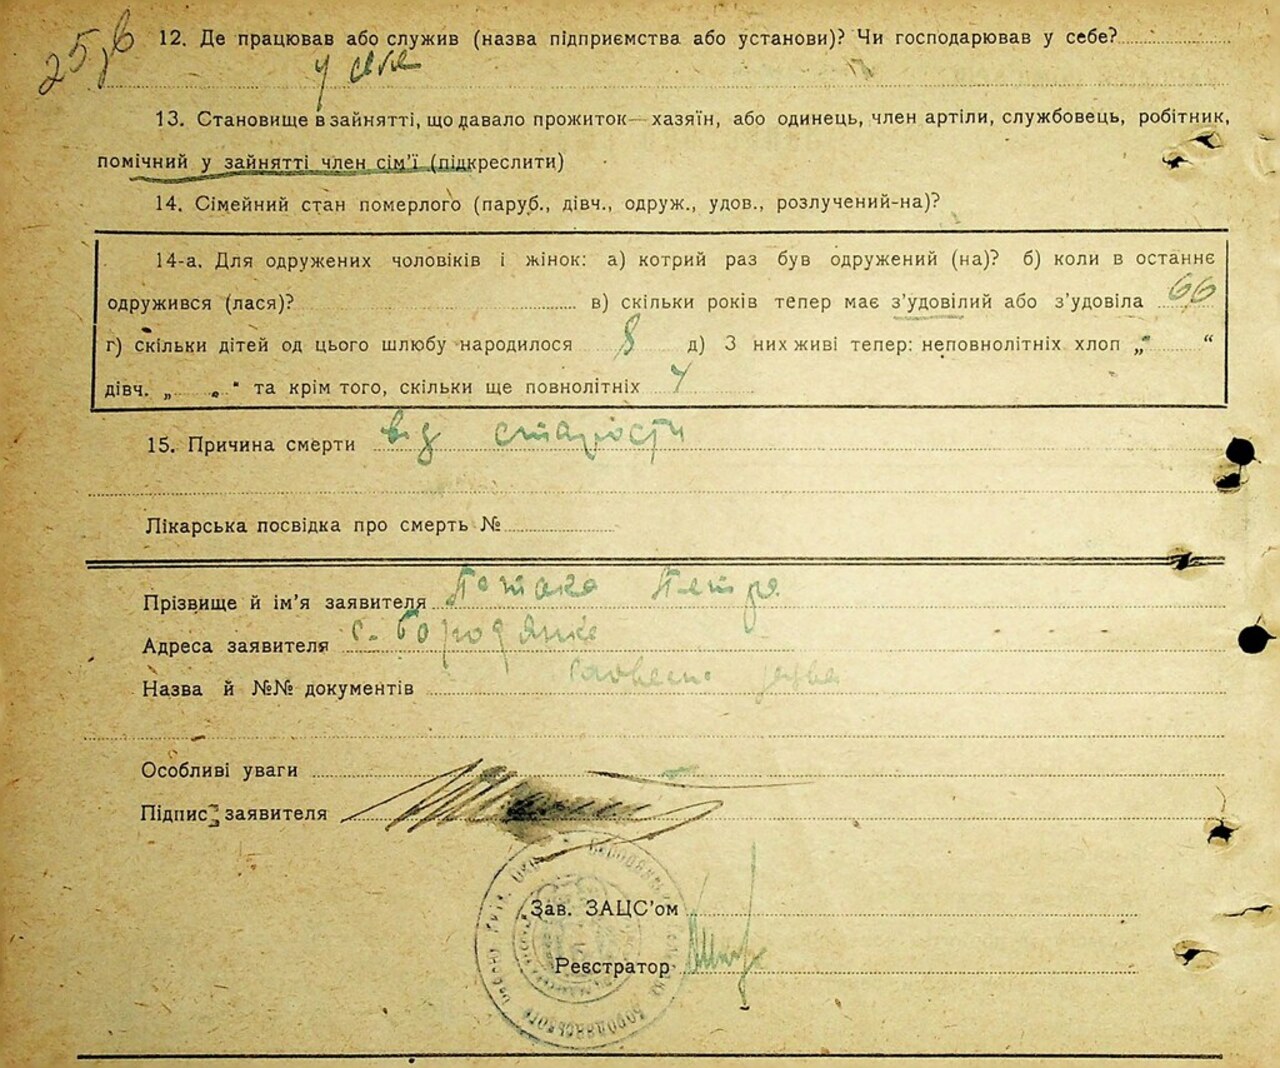 12. Де працював або служив (назва підприємства або установи)? Чи господарював у себе?
у себе
13. Становище в зайнятті, що давало прожиток — хазяїн, або одинець, член артіли, службовець, робітник,
помічний у зайнятті член сім'ї (підкреслити)
14. Сімейний стан померлого (паруб., дівч., одруж., удов., розлучений-на)?
14-а. Для одружених чоловіків і жінок: а) котрий раз був одружений (на)? б) коли в останнє
одружився (лася)? в) скільки років тепер має з'удовілий або з'удовіла 66
г) скільки дітей од цього шлюбу народилося 8 д) З них живі тепер: неповнолітніх хлоп „ “
дівч. „ “ та крім того, скільки ще повнолітніх
15. Причина смерти від старости
Лікарська посвідка про смерть №
Прізвище й ім'я заявителя Петра
Адреса заявителя с. Бородянка
Назва й №№ документів
Особливі уваги
Підпис заявителя
Зав. ЗАЦС'ом
Реєстратор